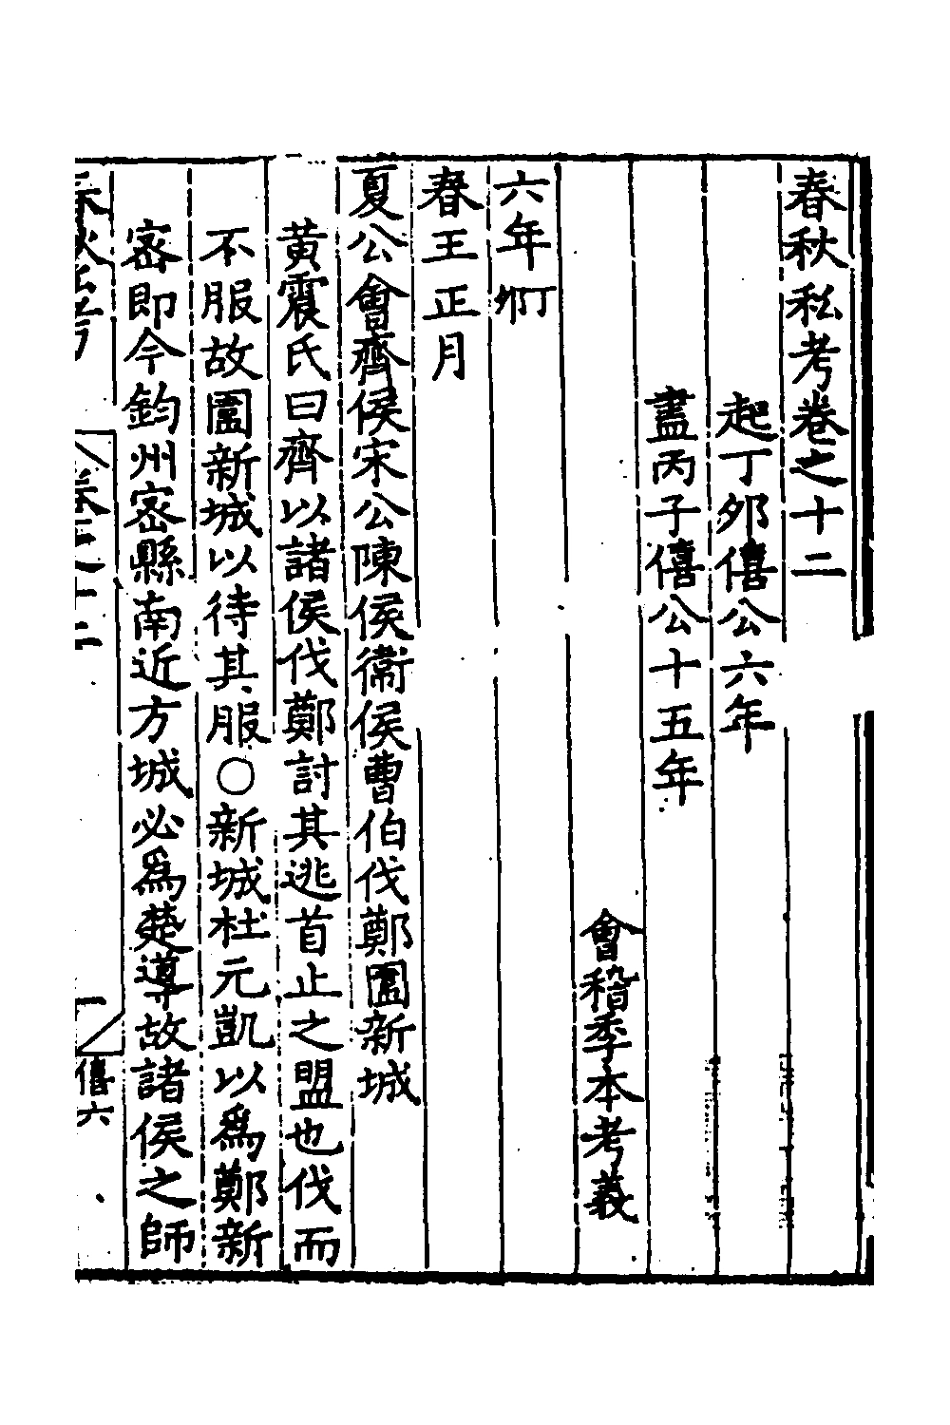 春秋私考卷之十二
起丁夘僖公六年
盡丙子僖公十五年
會稽季本考義
六年
春王正月
夏公會齊侯宋公陳侯衞侯曹伯伐鄭圍新城
黃震氏曰齊以諸侯伐鄭討其逃首止之盟也伐而
不服故圍新城以待其服○新城杜元凱以爲鄭新
宻即今鈞州宻縣南近方城必爲楚導故諸侯之師
僖六